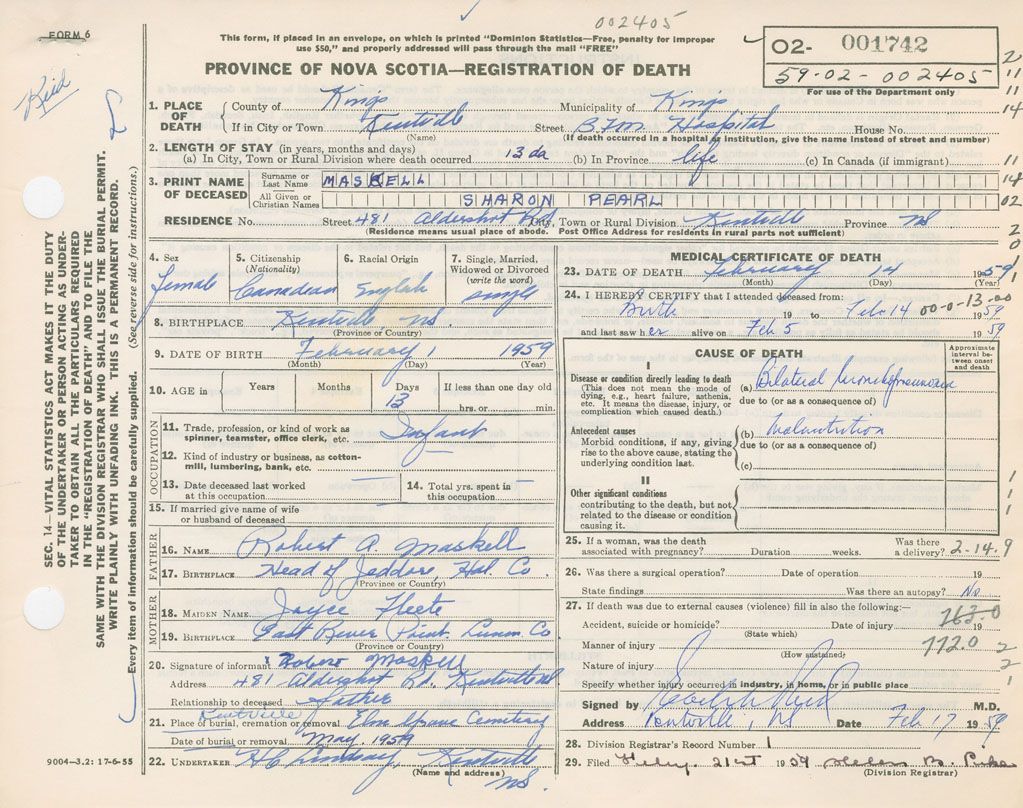 FORM 6
002405
This form, if placed in an envelope, on which is printed "Dominion Statistics—Free, penalty for improper
use $50," and properly addressed will pass through the mail "FREE"
PROVINCE OF NOVA SCOTIA—REGISTRATION OF DEATH
02- 001742
59-02-002405
For use of the Department only
Reid
SEC. 14—VITAL STATISTICS ACT MAKES IT THE DUTY
OF THE UNDERTAKER OR PERSON ACTING AS UNDER-
TAKER TO OBTAIN ALL THE PARTICULARS REQUIRED
IN THE "REGISTRATION OF DEATH" AND TO FILE THE
SAME WITH THE DIVISION REGISTRAR WHO SHALL ISSUE THE BURIAL PERMIT.
WRITE PLAINLY WITH UNFADING INK. THIS IS A PERMANENT RECORD.
Every item of information should be carefully supplied. (See reverse side for instructions.)
1. PLACE OF DEATH
County of Kings Municipality of Kings
If in City or Town Kentville Street B.F.M. Hospital House No.
(Name) (If death occurred in a hospital or institution, give the name instead of street and number)
2. LENGTH OF STAY (in years, months and days)
(a) In City, Town or Rural Division where death occurred 13 da (b) In Province life (c) In Canada (if immigrant)
3. PRINT NAME OF DECEASED
Surname or Last Name MASKELL
All Given or Christian Names SHARON PEARL
RESIDENCE No. Street 481 Aldershot Rd City, Town or Rural Division Kentville Province NS
(Residence means usual place of abode. Post Office Address for residents in rural parts not sufficient)
4. Sex female
5. Citizenship (Nationality) Canadian
6. Racial Origin English
7. Single, Married, Widowed or Divorced (write the word) single
8. BIRTHPLACE Kentville NS.
(Province or Country)
9. DATE OF BIRTH February 1 1959
(Month) (Day) (Year)
10. AGE in Years Months Days 13 If less than one day old
hrs. or min.
OCCUPATION
11. Trade, profession, or kind of work as spinner, teamster, office clerk, etc. Infant
12. Kind of industry or business, as cotton-mill, lumbering, bank, etc.
13. Date deceased last worked at this occupation —
14. Total yrs. spent in this occupation —
15. If married give name of wife or husband of deceased —
FATHER
16. NAME Robert A. Maskell
17. BIRTHPLACE Head of Jeddore, Hal. Co.
(Province or Country)
MOTHER
18. MAIDEN NAME Joyce
19. BIRTHPLACE East River Point Lunen. Co
(Province or Country)
20. Signature of informant Robert Maskell
Address 481 Aldershot Rd. Kentville NS
Relationship to deceased Father
Kentville
21. Place of burial, cremation or removal Elm Grove Cemetery
Date of burial or removal May 1959
22. UNDERTAKER H C Lindsay, Kentville
(Name and address) NS.
9004—3.2: 17-6-55
MEDICAL CERTIFICATE OF DEATH
23. DATE OF DEATH February 14 1959
(Month) (Day) (Year)
24. I HEREBY CERTIFY that I attended deceased from: 00-0-13-00
Birth 19 to Feb 14 1959
and last saw her alive on Feb 5 1959
CAUSE OF DEATH
Approximate interval between onset and death
I
Disease or condition directly leading to death
(This does not mean the mode of dying, e.g., heart failure, asthenia, etc. It means the disease, injury, or complication which caused death.)
(a) Bilateral bronchopneumonia
due to (or as a consequence of)
Antecedent causes
Morbid conditions, if any, giving rise to the above cause, stating the underlying condition last.
(b) Malnutrition
due to (or as a consequence of)
(c)
II
Other significant conditions
contributing to the death, but not related to the disease or condition causing it.
25. If a woman, was the death associated with pregnancy? Duration weeks. Was there a delivery? 2-14.9
26. Was there a surgical operation? Date of operation 19
State findings Was there an autopsy? No
27. If death was due to external causes (violence) fill in also the following:—
763.0
Accident, suicide or homicide? Date of injury 19
(State which)
772.0
Manner of injury
(How sustained)
Nature of injury
Specify whether injury occurred in industry, in home, or in public place
Signed by Reid M.D.
Address Kentville, NS Date Feb 17 1959
28. Division Registrar's Record Number 1
29. Filed Feby. 21st 1959 Helen B.
(Division Registrar)
2
11
11
14
11
14
02
2
0
1
1
1
1
2
2
1